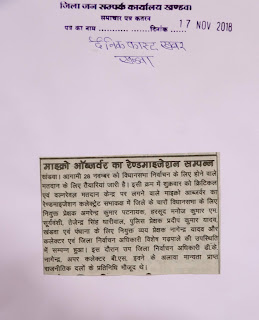 जिला जन सम्पर्क कार्यालय खण्डवा
समाचार पत्र कतरन
पत्र का नाम
17 NOV 2018
दैनिक फास्ट खबर
खण्डवा
माइक्रो ऑब्जर्वर का रेण्डमाइजेशन सम्पन्न
खंडवा। आगामी 28 नवम्बर को विधानसभा निर्वाचन के लिए होने वाले
मतदान के लिए तैयारियां जारी है। इसी क्रम में शुक्रवार को क्रिटिकल
एवं वल्नरेबल मतदान केन्द्र पर लगने वाले माइक्रो आब्जर्वर का
रेण्डमाइजेशन कलेक्ट्रेट सभाकक्ष में जिले के चारों विधानसभा के लिए
नियुक्त प्रेक्षक अमरेन्द्र कुमार पटनायक, हरसूद मनोज कुमार एम.
सूर्यवंशी, तेजेन्द्र सिंह धारीवाल, पुलिस प्रेक्षक प्रदीप कुमार यादव,
खंडवा एवं पंधाना के लिए नियुक्त व्यय प्रेक्षक नागेन्द्र यादव और
कलेक्टर एवं जिला निर्वाचन अधिकारी विशेष गढ़पाले की उपस्थिति
में सम्पन्न हुआ। इस दौरान उप जिला निर्वाचन अधिकारी डी.के.
नागेन्द्र, अपर कलेक्टर बी.एस. इवने के अलावा मान्यता प्राप्त
राजनीतिक दलों के प्रतिनिधि मौजूद थे।